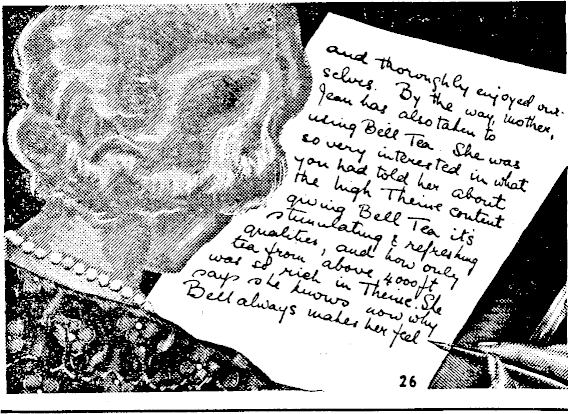 and thoroughly enjoyed our-
selves. By the way, mother,
Jean has also taken to
using Bell Tea. She was
so very interested in what
you had told her about
the high Theine content
giving Bell Tea it's
stimulating & refreshing
qualities, and how only
tea from above 4000 ft
was so rich in Theine. She
says she knows now why
Bell always makes her feel
26